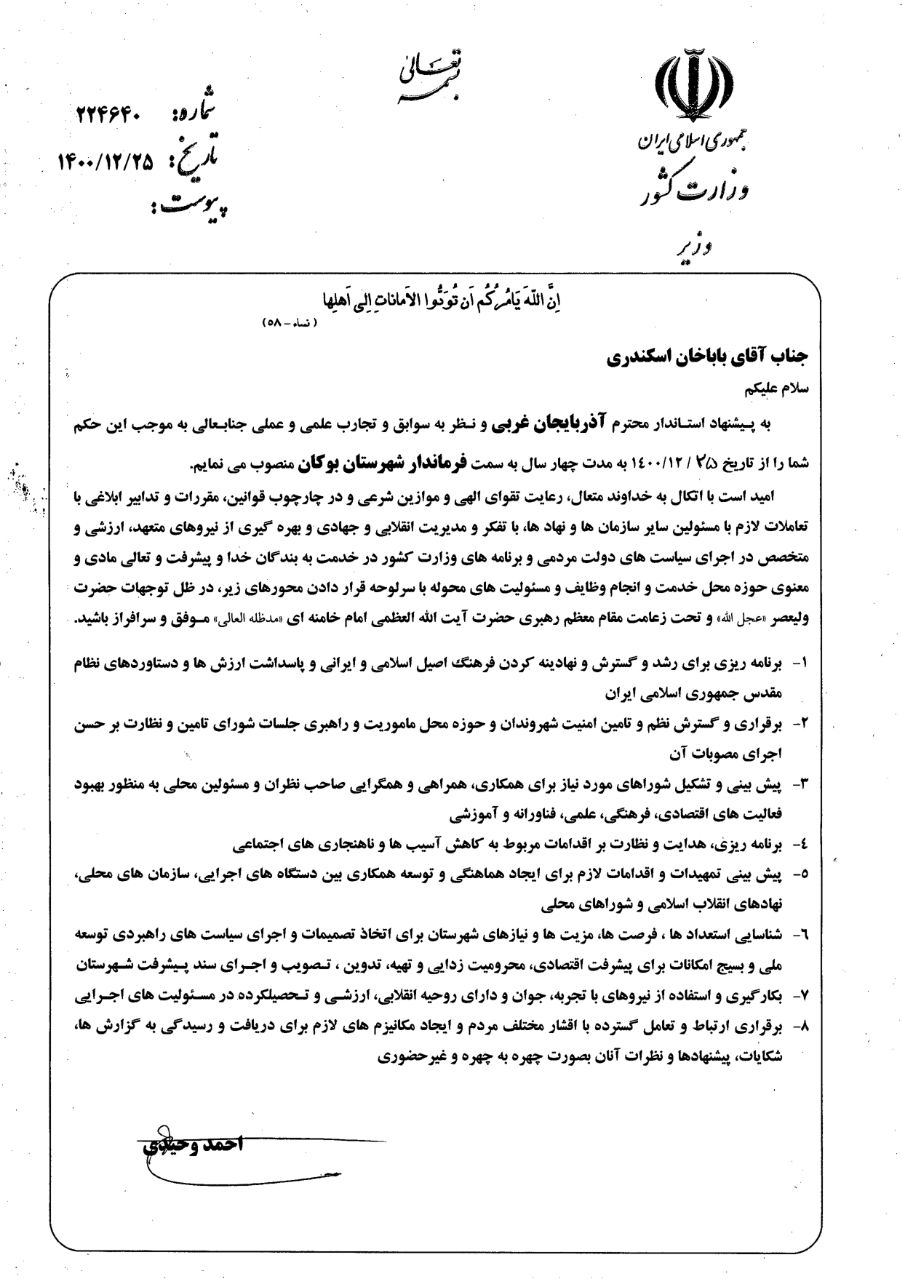 بسمه تعالی
جمهوری اسلامی ایران
وزارت کشور
وزیر
شماره: ۲۲۴۶۴۰
تاریخ: ۱۴۰۰/۱۲/۲۵
پیوست:
اِنَّ اللّهَ یَامُرُکُم اَن تُوَدُّوا الاَماناتِ اِلی اَهلِها
(نساء - ۵۸)
جناب آقای باباخان اسکندری
سلام علیکم
به پیشنهاد استاندار محترم آذربایجان غربی و نظر به سوابق و تجارب علمی و عملی جنابعالی به موجب این حکم
شما را از تاریخ ۲۵ / ۱۴۰۰/۱۲ به مدت چهار سال به سمت فرماندار شهرستان بوکان منصوب می نمایم.
امید است با اتکال به خداوند متعال، رعایت تقوای الهی و موازین شرعی و در چارچوب قوانین، مقررات و تدابیر ابلاغی با
تعاملات لازم با مسئولین سایر سازمان ها و نهاد ها، با تفکر و مدیریت انقلابی و جهادی و بهره گیری از نیروهای متعهد، ارزشی و
متخصص در اجرای سیاست های دولت مردمی و برنامه های وزارت کشور در خدمت به بندگان خدا و پیشرفت و تعالی مادی و
معنوی حوزه محل خدمت و انجام وظایف و مسئولیت های محوله با سرلوحه قرار دادن محورهای زیر، در ظل توجهات حضرت
ولیعصر «عجل الله» و تحت زعامت مقام معظم رهبری حضرت آیت الله العظمی امام خامنه ای «مدظله العالی» موفق و سرافراز باشید.
۱- برنامه ریزی برای رشد و گسترش و نهادینه کردن فرهنگ اصیل اسلامی و ایرانی و پاسداشت ارزش ها و دستاوردهای نظام
مقدس جمهوری اسلامی ایران
۲- برقراری و گسترش نظم و تامین امنیت شهروندان و حوزه محل ماموریت و راهبری جلسات شورای تامین و نظارت بر حسن
اجرای مصوبات آن
۳- پیش بینی و تشکیل شوراهای مورد نیاز برای همکاری، همراهی و همگرایی صاحب نظران و مسئولین محلی به منظور بهبود
فعالیت های اقتصادی، فرهنگی، علمی، فناورانه و آموزشی
۴- برنامه ریزی، هدایت و نظارت بر اقدامات مربوط به کاهش آسیب ها و ناهنجاری های اجتماعی
۵- پیش بینی تمهیدات و اقدامات لازم برای ایجاد هماهنگی و توسعه همکاری بین دستگاه های اجرایی، سازمان های محلی،
نهادهای انقلاب اسلامی و شوراهای محلی
۶- شناسایی استعداد ها ، فرصت ها، مزیت ها و نیازهای شهرستان برای اتخاذ تصمیمات و اجرای سیاست های راهبردی توسعه
ملی و بسیج امکانات برای پیشرفت اقتصادی، محرومیت زدایی و تهیه، تدوین ، تصویب و اجرای سند پیشرفت شهرستان
۷- بکارگیری و استفاده از نیروهای با تجربه، جوان و دارای روحیه انقلابی، ارزشی و تحصیلکرده در مسئولیت های اجرایی
۸- برقراری ارتباط و تعامل گسترده با اقشار مختلف مردم و ایجاد مکانیزم های لازم برای دریافت و رسیدگی به گزارش ها،
شکایات، پیشنهادها و نظرات آنان بصورت چهره به چهره و غیرحضوری
احمد وحیدی